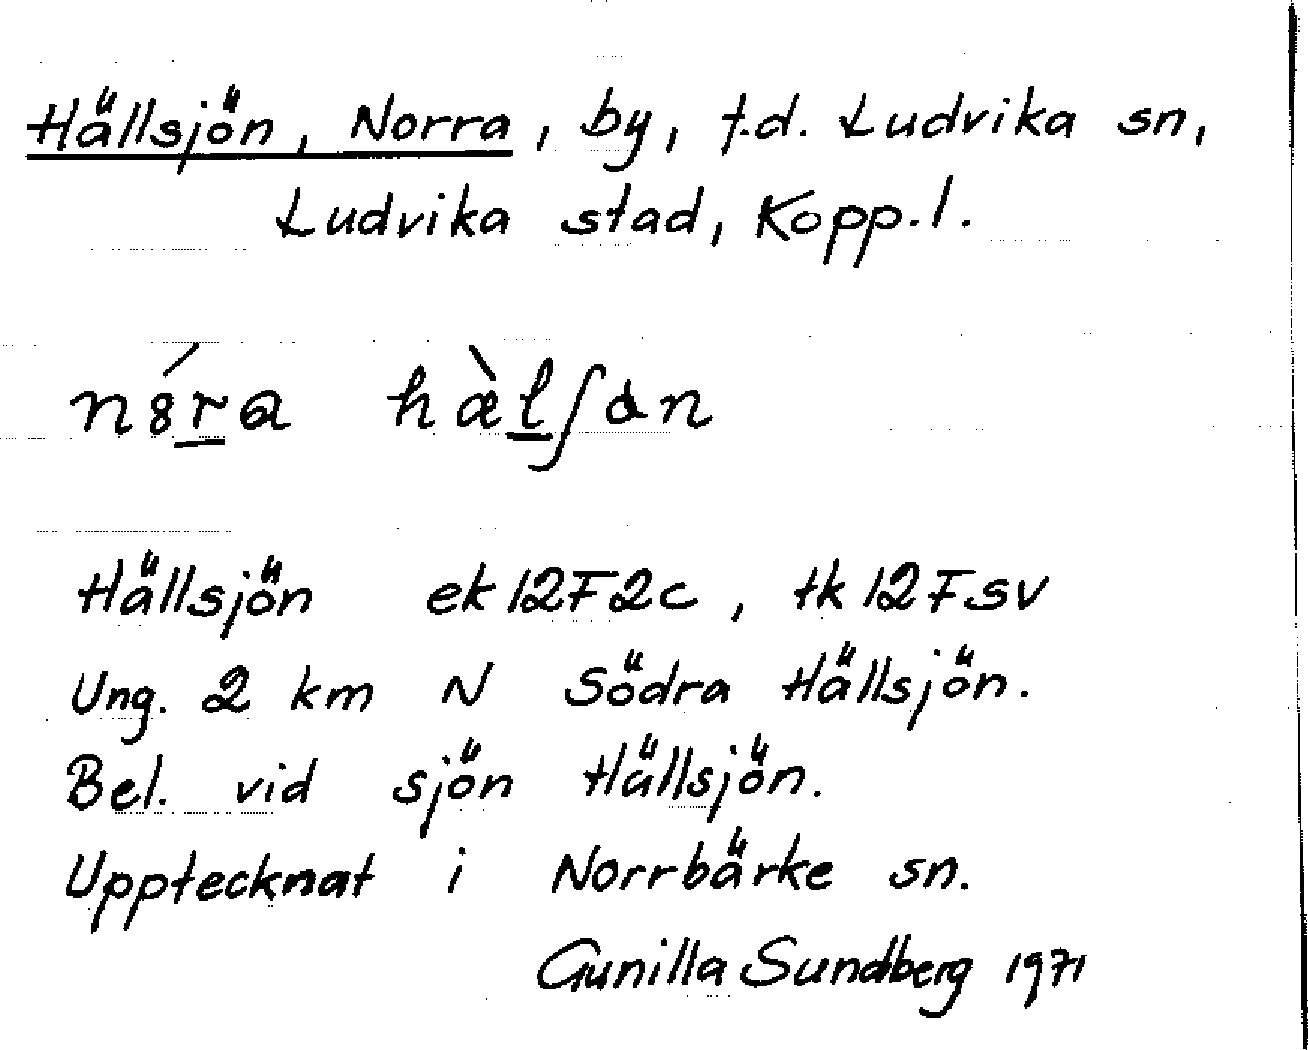 Hällsjön, Norra, by, f.d. Ludvika sn,
Ludvika stad, Kopp.l.
Hällsjön ek 12F2c, tk 12Fsv
Ung. 2 km N Södra Hällsjön.
Bel. vid sjön Hällsjön.
Upptecknat i Norrbärke sn.
Gunilla Sundberg 1971